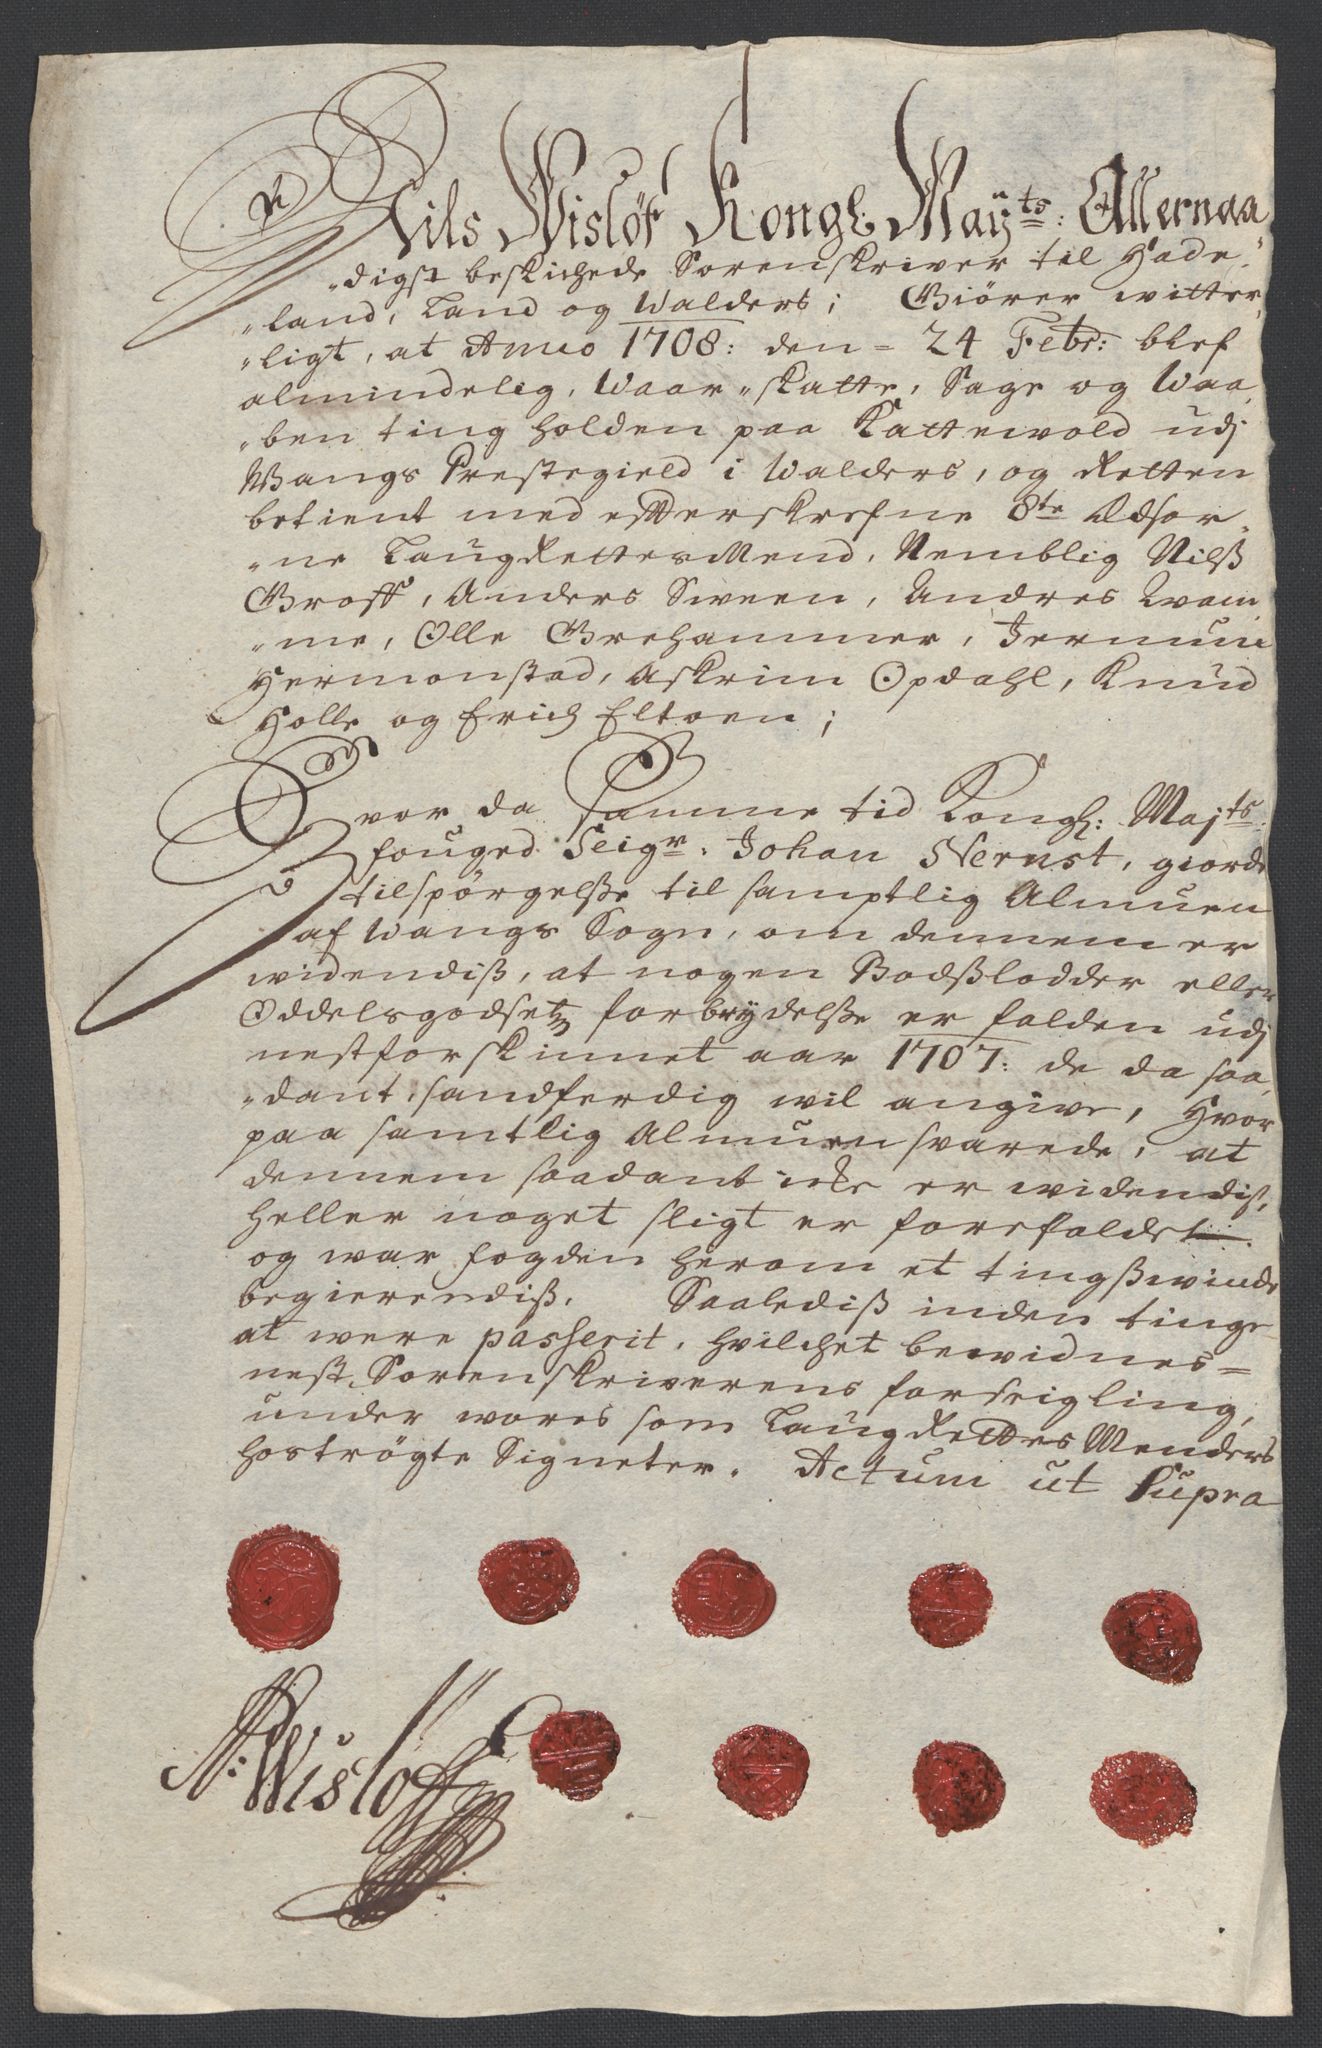 Nils Wislöf Kongl: Maÿts: Allernaa
"digst beskichede Sorenskriver til Hade"
"land, Land og Walders; Giörer witter"
"ligt, at Anno 1708: den = 24 Febr: blef
almindelig, Waar "skatte, Sage og Waa"
"ben ting holden paa Kattewold udj
Wangs Prestegield i Walders, og Retten
betient med effterskrefne 8te Edsor"
"ne LaugRettesMend, Nemblig Nilß
Groff, Anders Sween, Andres Qvam
"me, Olle Grehammer, Jermun
Hermonstad, Askrim Opdahl, Knud
Holle og Erich Eltoen;
Hvor da Samme tid Kongl: Majts:
fouged Seigr. Johan Nernst, giorde
tilspörgelße til samptlig Almuen
af Wangs Sogn, om dennem er
widendiß, at nogen Bodßlodder eller
Oddelsgodsetz forbrydelße er falden udj
nestforskinnet aar 1707: de da saa"
"dant sandferdig wil angive, Hvor
paa samtlig Almuen svarede, at
dennem saadant icke er widendiß,
heller noget sligt er forefaldet
og war fogden herom et tingßwinde
begierendiß. Saalediß inden tinge
at were passerit, hvilchet bewidnes =
nest Sorenskriverens forseigling,
under wores som LaugRettes Menders
hoströgte Signeter. Actum ut Supra
N: Wisloff